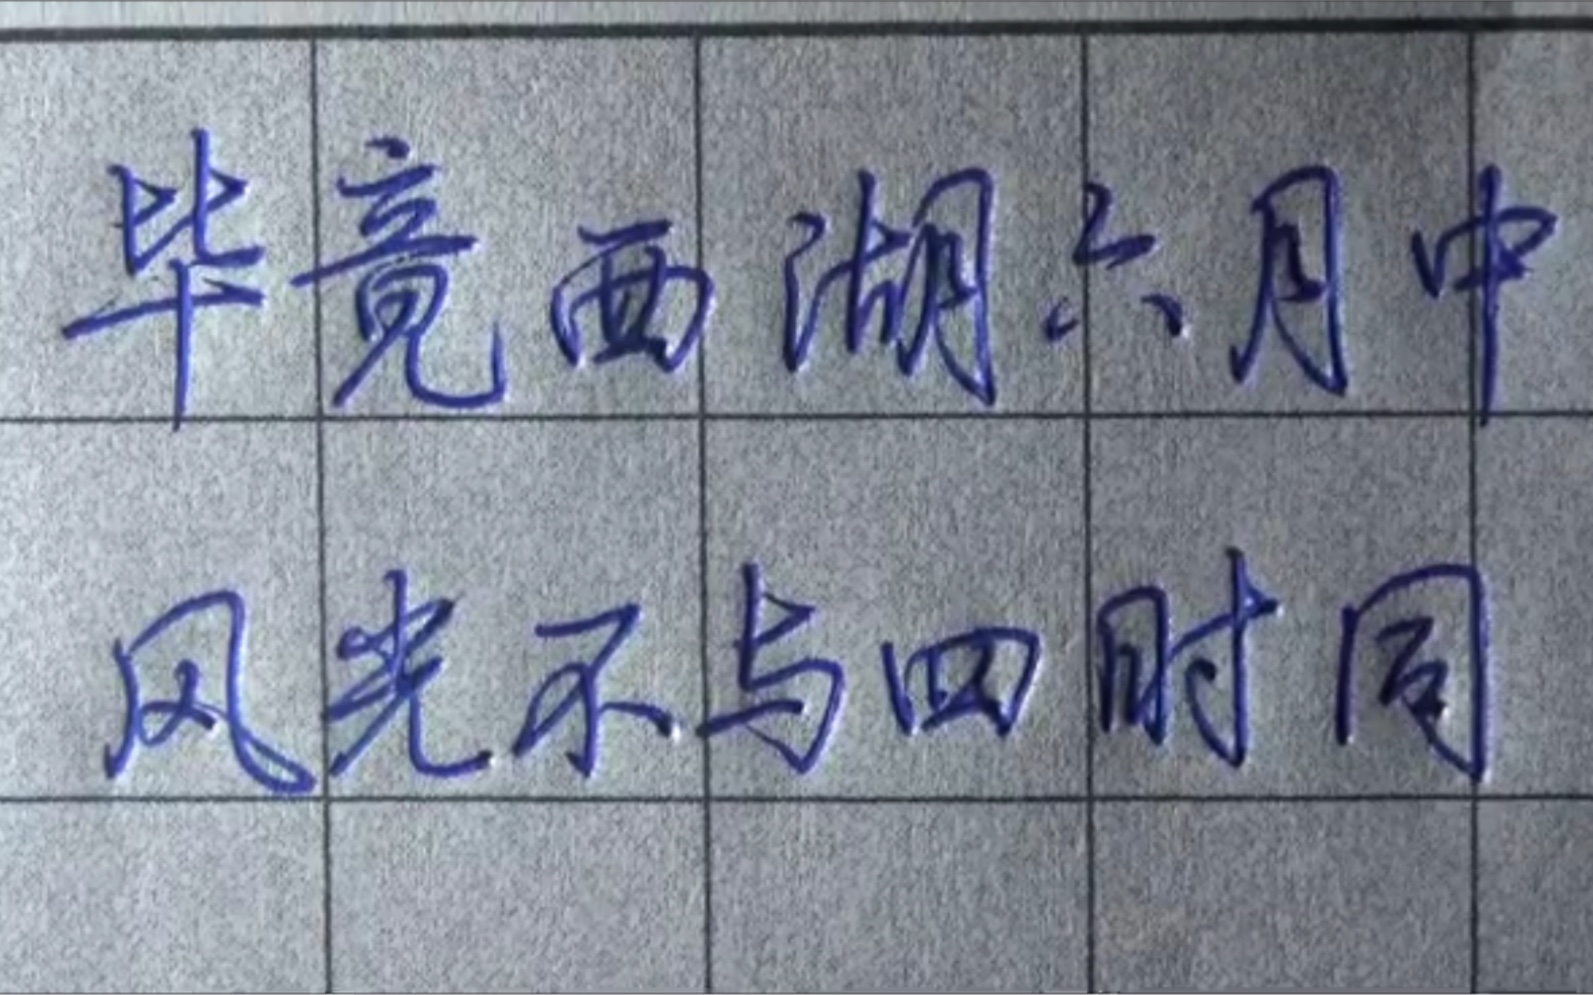 毕竟西湖六月中
风光不与四时同